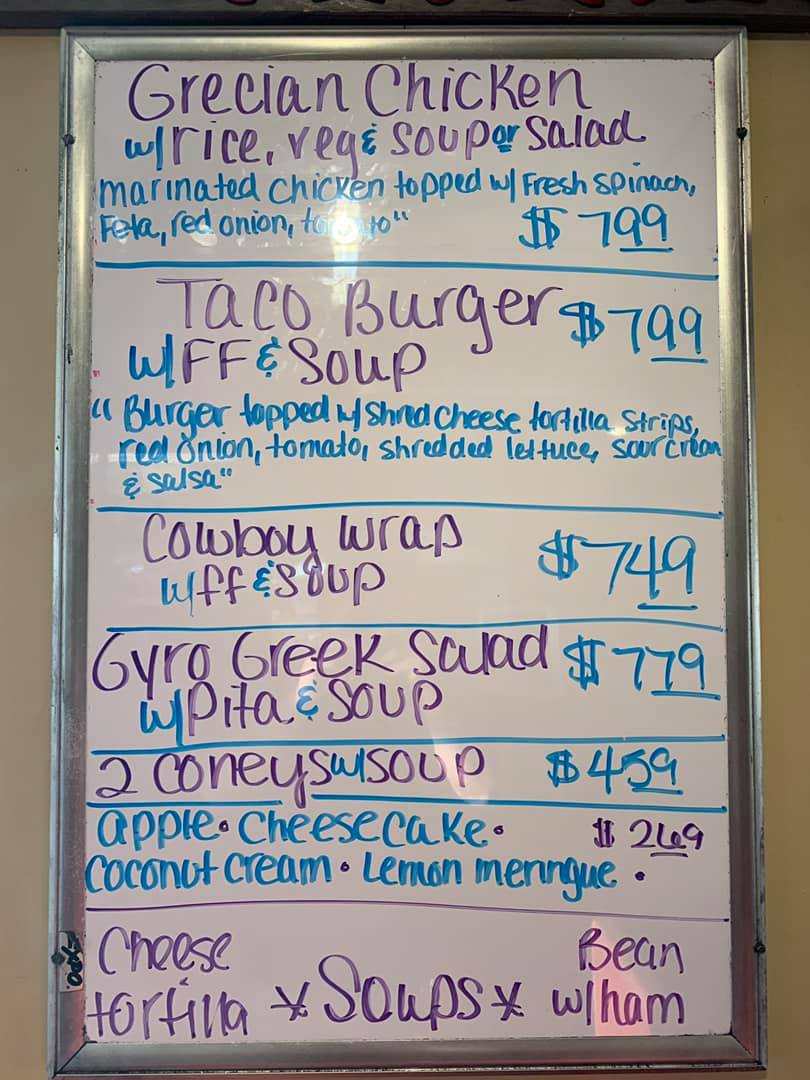 Grecian Chicken
w/rice, veg & soup or salad
marinated chicken topped w/ Fresh spinach,
Feta, red onion, tomato" $ 799
Taco Burger $ 799
w/FF & Soup
" Burger topped w/ shred cheese tortilla strips,
red onion, tomato, shredded lettuce, sour cream
& salsa"
Cowboy wrap $ 749
w/ff & soup
Gyro Greek Salad $ 779
w/Pita & soup
2 coneys w/soup $ 459
apple • cheesecake • $ 269
coconut cream • Lemon meringue •
Cheese tortilla * Soups * Bean w/ham